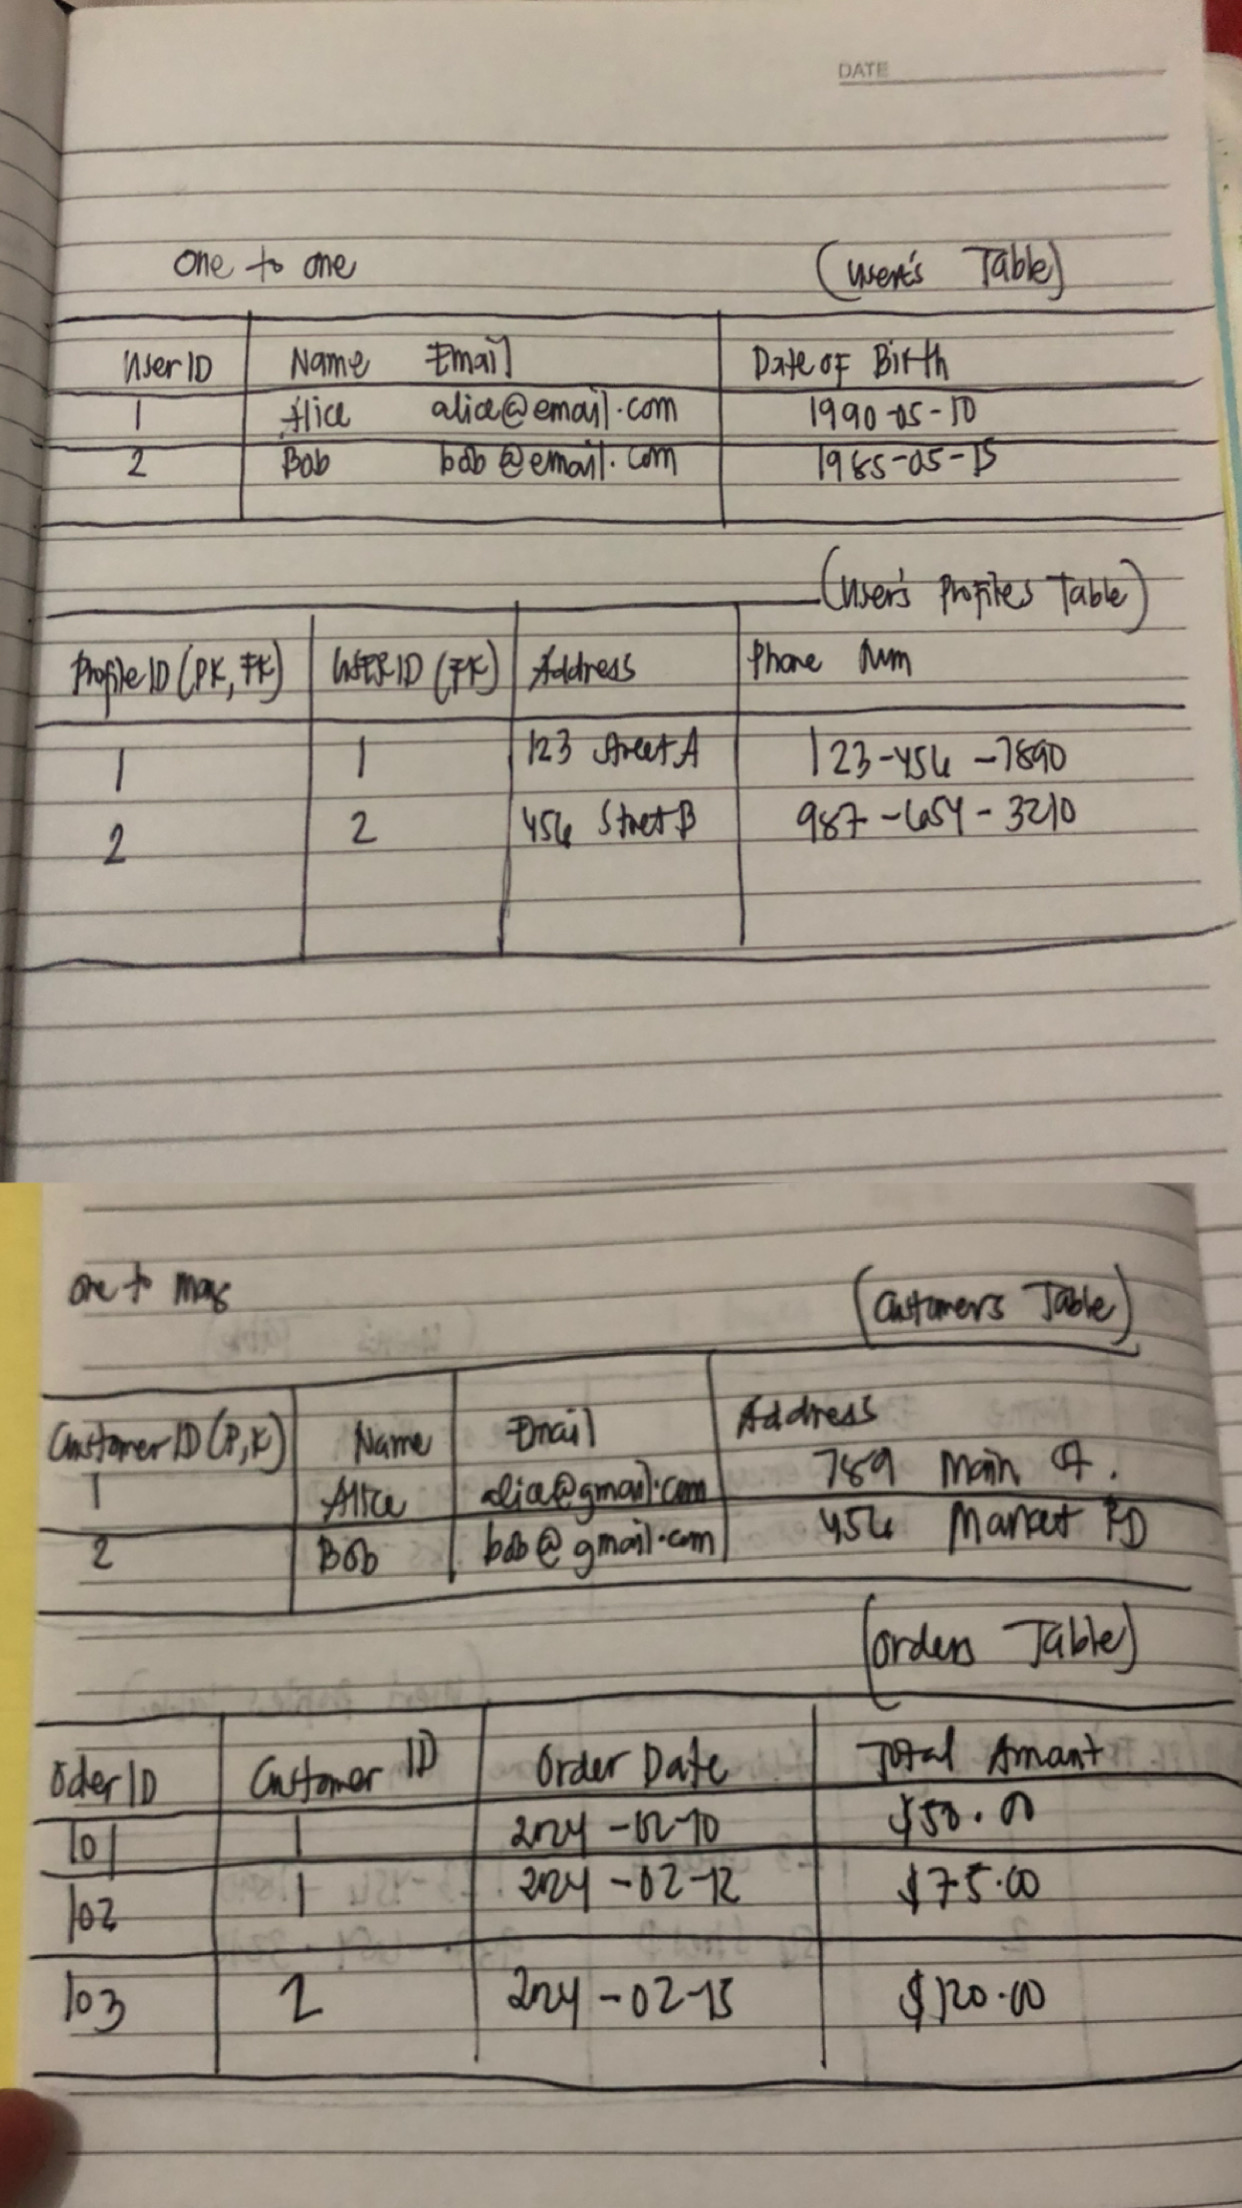 DATE
one to one (User's Table)
User ID Name Email Date of Birth
1 Alice alice@email.com 1990-05-10
2 Bob bob@email.com 1985-05-15
(User's Profiles Table)
Profile ID (PK, FK) USER ID (FK) Address Phone Num
1 1 123 Street A 123-456-7890
2 2 456 Stret B 987-654-3210
one to many (Customers Table)
Customer ID (P,K) Name Email Address
1 Alice alice@gmail.com 789 Main
2 Bob bob@gmail.com 456 Market RD
(Orders Table)
Oder ID Customer ID Order Date Total Amount
101 1 2024-02-10 $50.00
102 1 2024-02-12 $75.00
103 2 2024-02-15 $120.00